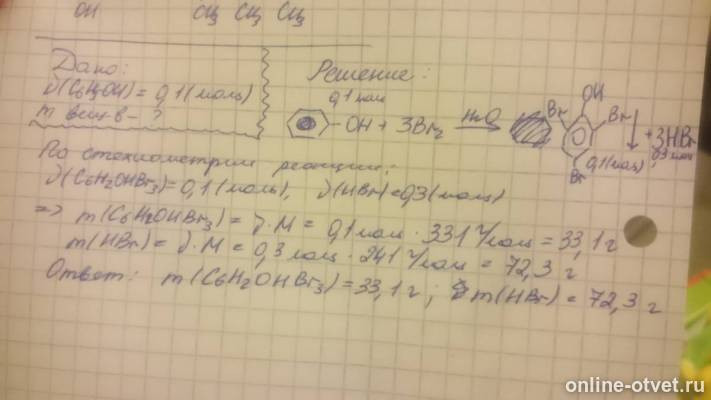 OH CH₂ CH₂ CH₂
Дано:
ν(C₆H₅OH) = 0,1 (моль)
m вещ-в - ?
Решение:
0,1 моль
-OH + 3Br₂ H₂O
OH
Br Br
Br
↓ + 3HBr
0,1 (моль) 0,3 моль
По стехиометрии реакции:
ν(C₆H₂OHBr₃) = 0,1 (моль), ν(HBr) = 0,3 (моль)
=> m(C₆H₂OHBr₃) = ν·M = 0,1 моль · 331 г/моль = 33,1 г
m(HBr) = ν·M = 0,3 моль · 241 г/моль = 72,3 г
Ответ: m(C₆H₂OHBr₃) = 33,1 г; m(HBr) = 72,3 г
online-otvet.ru